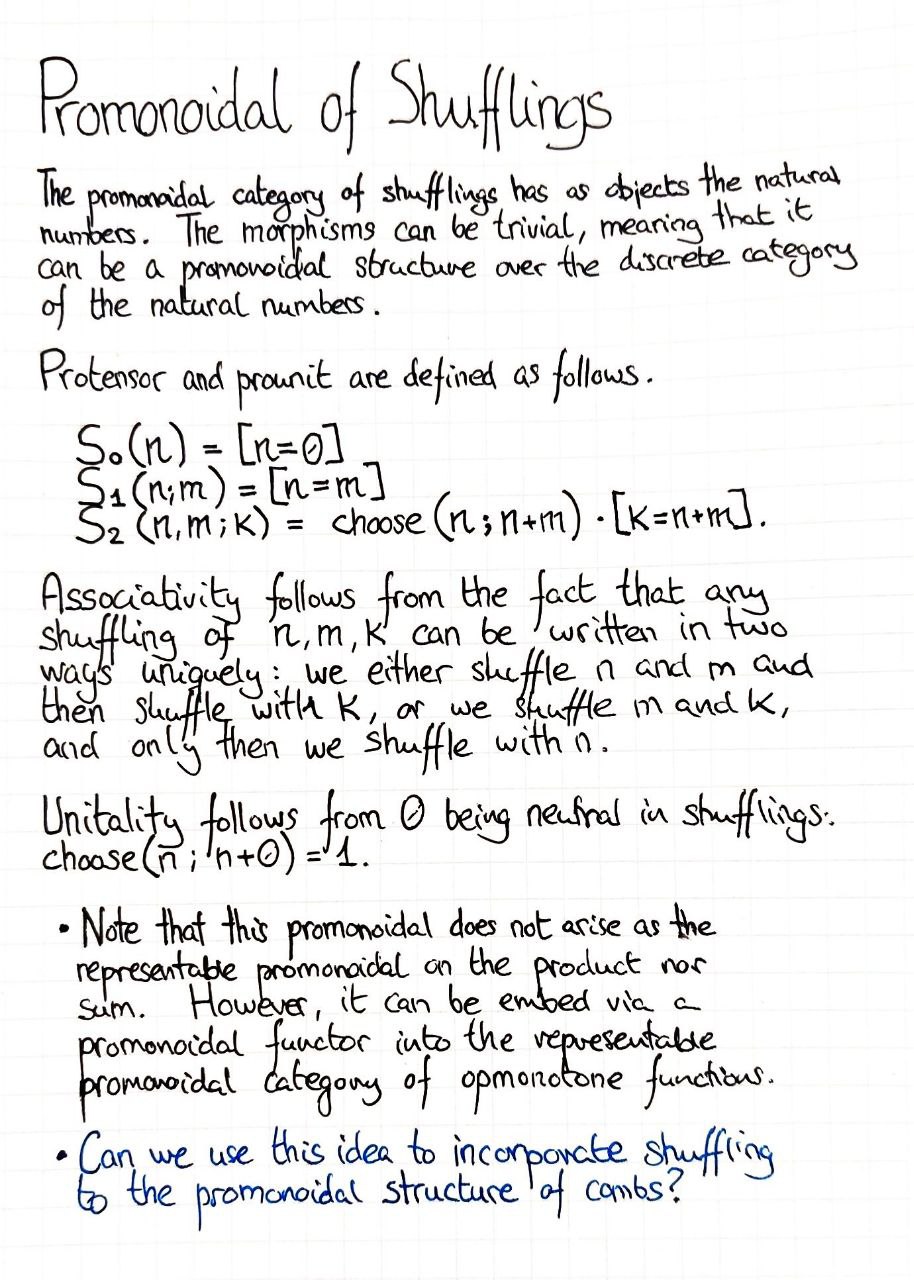 Promonoidal of Shufflings
The promonoidal category of shufflings has as objects the natural
numbers. The morphisms can be trivial, meaning that it
can be a promonoidal structure over the discrete category
of the natural numbers.
Protensor and prounit are defined as follows.
S₀(n) = [n=0]
S₁(n;m) = [n=m]
S₂(n,m;k) = choose(n;n+m)·[k=n+m].
Associativity follows from the fact that any
shuffling of n,m,k can be written in two
ways uniquely: we either shuffle n and m and
then shuffle with k, or we shuffle m and k,
and only then we shuffle with n.
Unitality follows from 0 being neutral in shufflings:
choose(n;n+0) = 1.
• Note that this promonoidal does not arise as the
representable promonoidal on the product nor
sum. However, it can be embed via a
promonoidal functor into the representable
promonoidal category of opmonotone functions.
• Can we use this idea to incorporate shuffling
to the promonoidal structure of combs?